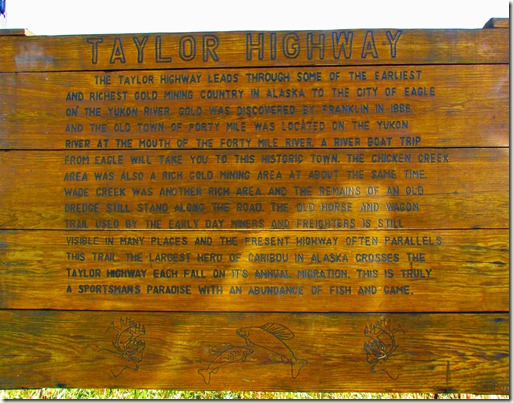 TAYLOR HIGHWAY
THE TAYLOR HIGHWAY LEADS THROUGH SOME OF THE EARLIEST
AND RICHEST GOLD MINING COUNTRY IN ALASKA TO THE CITY OF EAGLE
ON THE YUKON RIVER. GOLD WAS DISCOVERED BY FRANKLIN IN 1886
AND THE OLD TOWN OF FORTY MILE WAS LOCATED ON THE YUKON
RIVER AT THE MOUTH OF THE FORTY MILE RIVER. A RIVER BOAT TRIP
FROM EAGLE WILL TAKE YOU TO THIS HISTORIC TOWN. THE CHICKEN CREEK
AREA WAS ALSO A RICH GOLD MINING AREA AT ABOUT THE SAME TIME.
WADE CREEK WAS ANOTHER RICH AREA AND THE REMAINS OF AN OLD
DREDGE STILL STAND ALONG THE ROAD. THE OLD HORSE AND WAGON
TRAIL USED BY THE EARLY DAY MINERS AND FREIGHTERS IS STILL
VISIBLE IN MANY PLACES AND THE PRESENT HIGHWAY OFTEN PARALLELS
THIS TRAIL. THE LARGEST HERD OF CARIBOU IN ALASKA CROSSES THE
TAYLOR HIGHWAY EACH FALL ON IT'S ANNUAL MIGRATION. THIS IS TRULY
A SPORTSMAN'S PARADISE WITH AN ABUNDANCE OF FISH AND GAME.